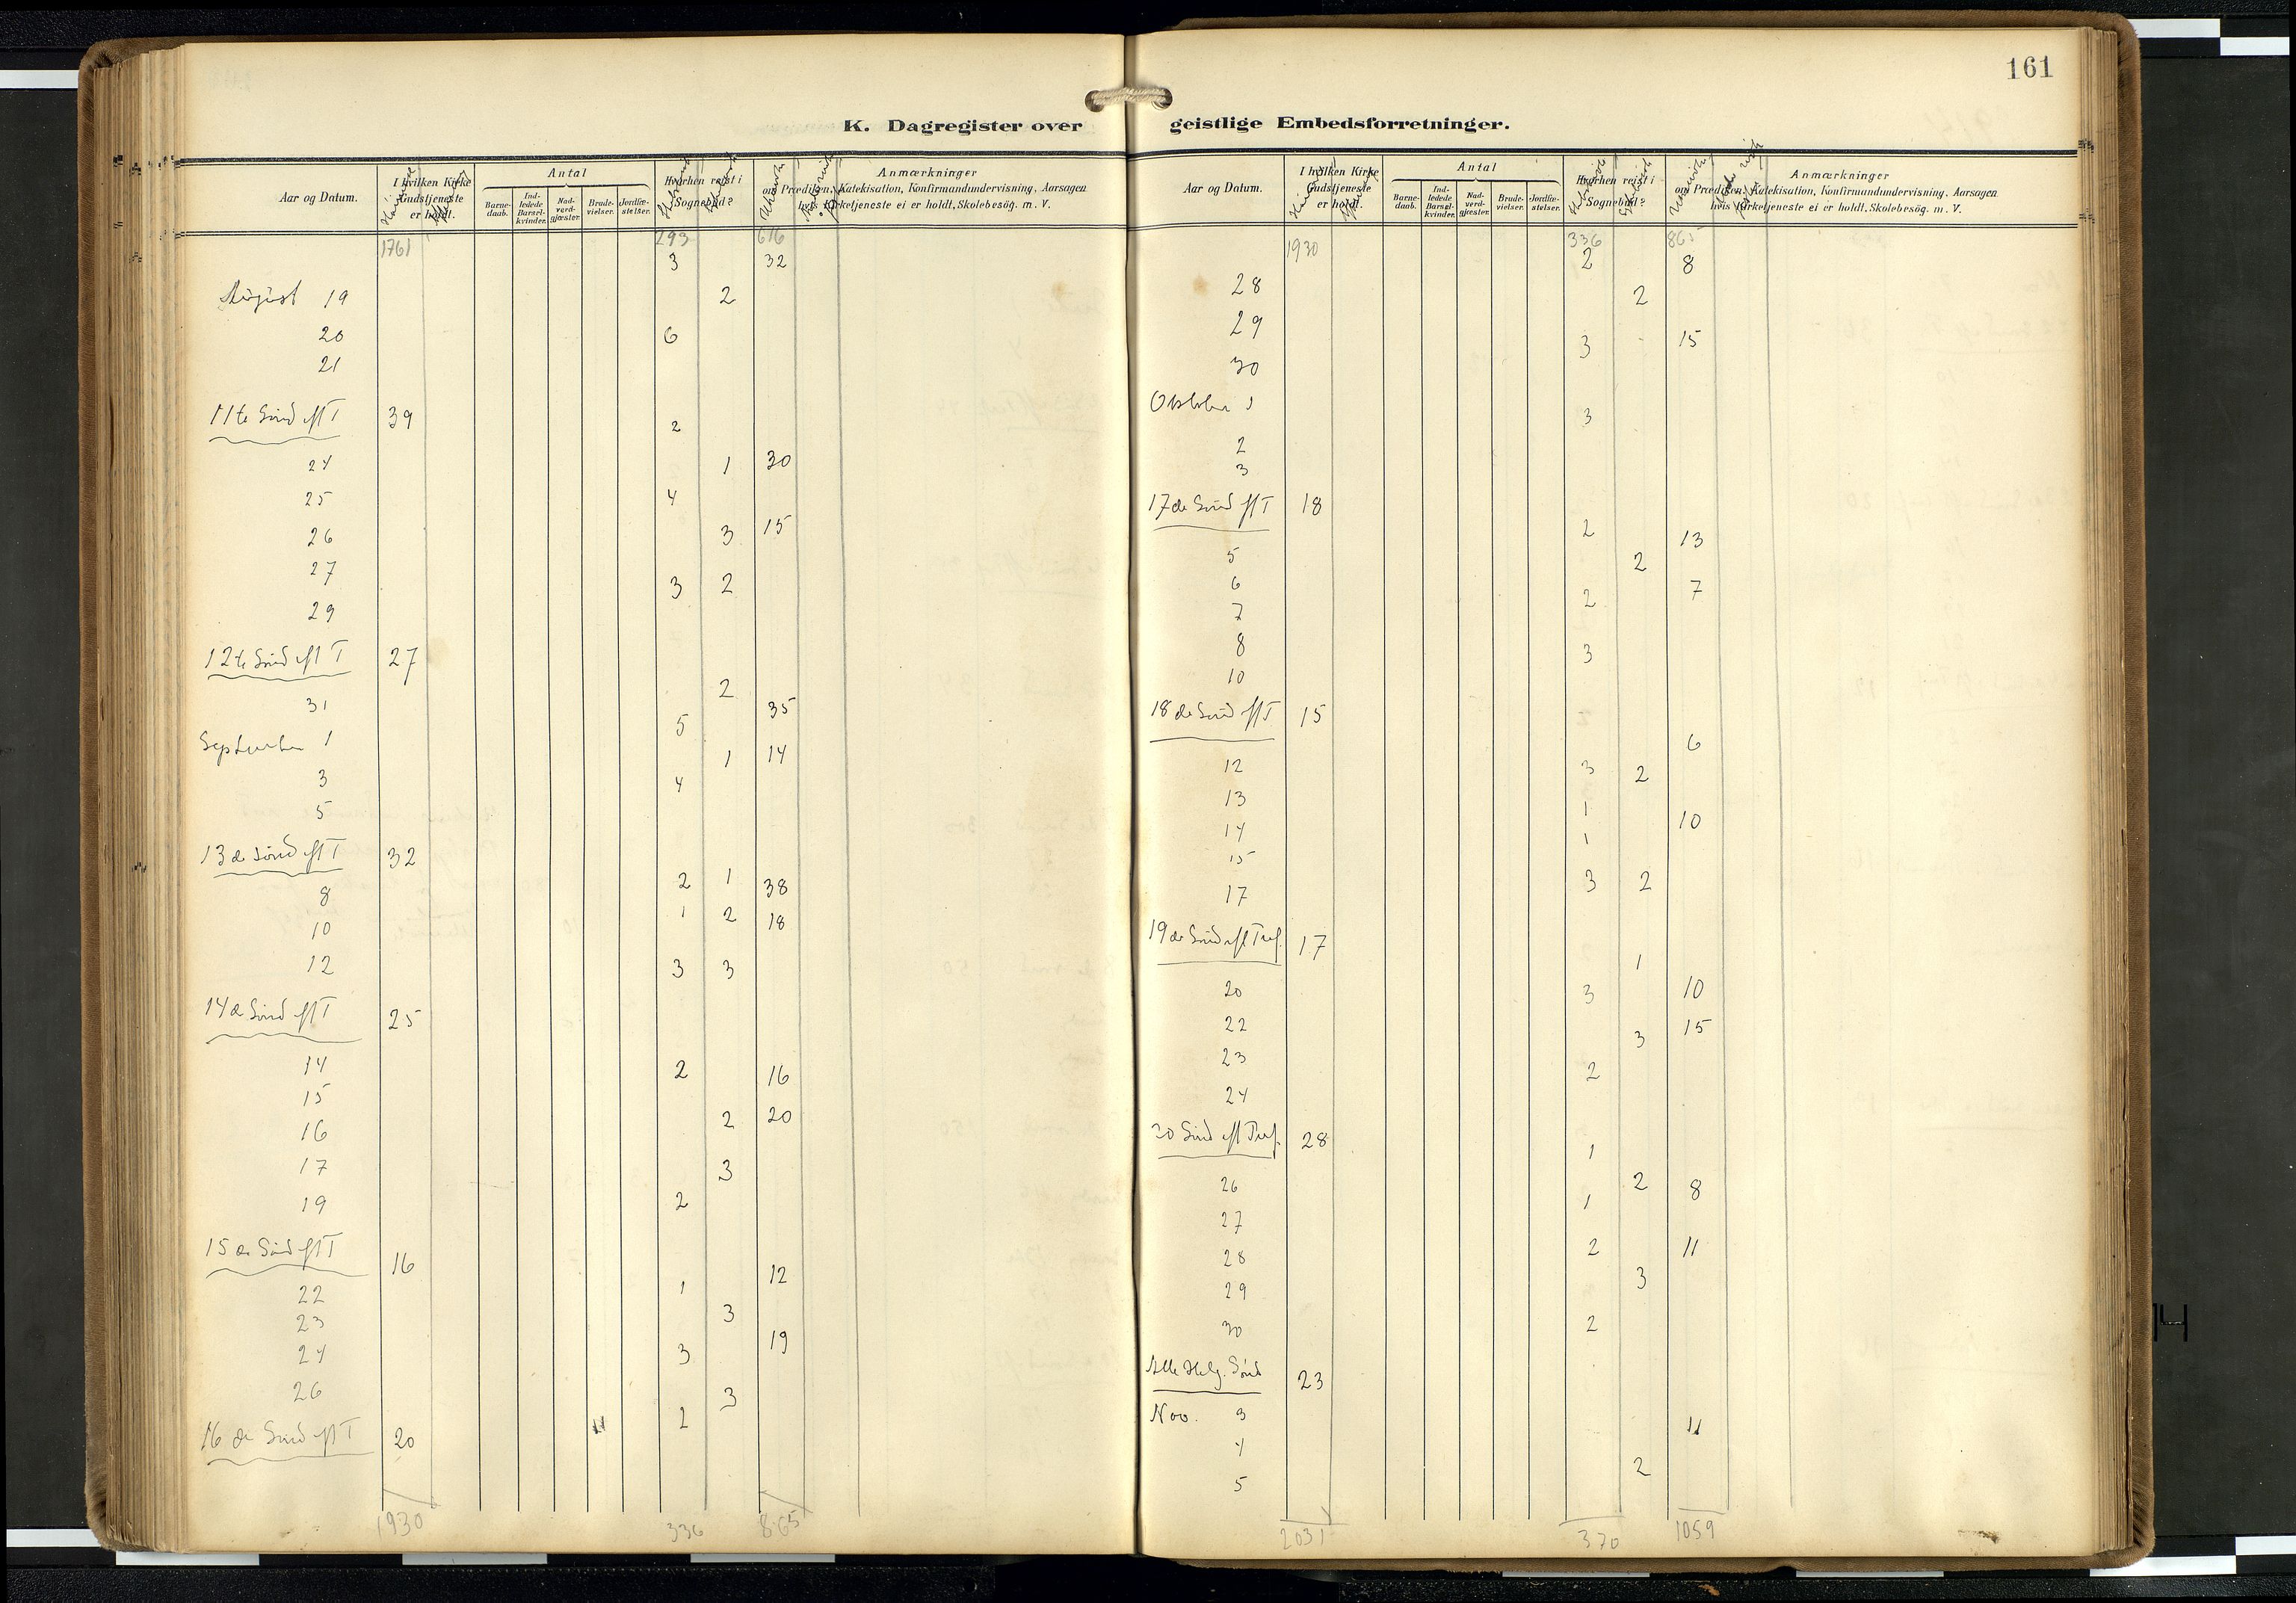 161
K. Dagregister over geistlige Embedsforretninger.
Aar og Datum. I hvilken Kirke Gudstjeneste er holdt. Antal Barnedaab. Indledede Barselkvinder. Nadverdgjæster. Brudevielser. Jordfæstelser. Hvorhen rejst i Sognebud? Anmærkninger om Prædiken, Katekisation, Konfirmandundervisning, Aarsagen hvis Kirketjeneste ei er holdt, Skolebesög. m. V.
1761 293 616
3 32
August 19 2
20 6
21
11te Sönd eft T 39 2
24 1 30
25 4
26 3 15
27 3 2
29
12te Sönd eft T 27
2
31 35
5
September 1
1 14
3 4
5
13de Sönd eft T 32
8 2 1 38
10 1 2 18
12 3 3
14de Sönd eft T 25
14 2 16
15
16 2 20
17 3
19 2
15de Sönd eft T 16
12
22 1
23 3
24 3 19
26 3
2
16de Sönd eft T 20
1930 336 865
Aar og Datum. I hvilken Kirke Gudstjeneste er holdt. Antal Barnedaab. Indledede Barselkvinder. Nadverdgjæster. Brudevielser. Jordfæstelser. Hvorhen rejst i Sognebud? Anmærkninger om Prædiken, Katekisation, Konfirmandundervisning, Aarsagen hvis Kirketjeneste ei er holdt, Skolebesög. m. V.
1930 336 865
2 8
28 2
29
3 15
30
Oktober 1 3
2
3
17de Sönd eft T 18
2 13
5 2
6 2 7
7
8 3
10
18de Sönd eft T 15
6
12 3 2
13 1
14 1 10
15
17 3 2
19de Sönd eft Tref. 17
1
20 3 10
22 3 15
23 2
24
20 Sönd eft Tref. 28
1
26 2 8
27 1
28 2 11
29 3
30 2
Alle Helg. Sönd 23
Nov. 3 11
4
5 2
2031 370 1059